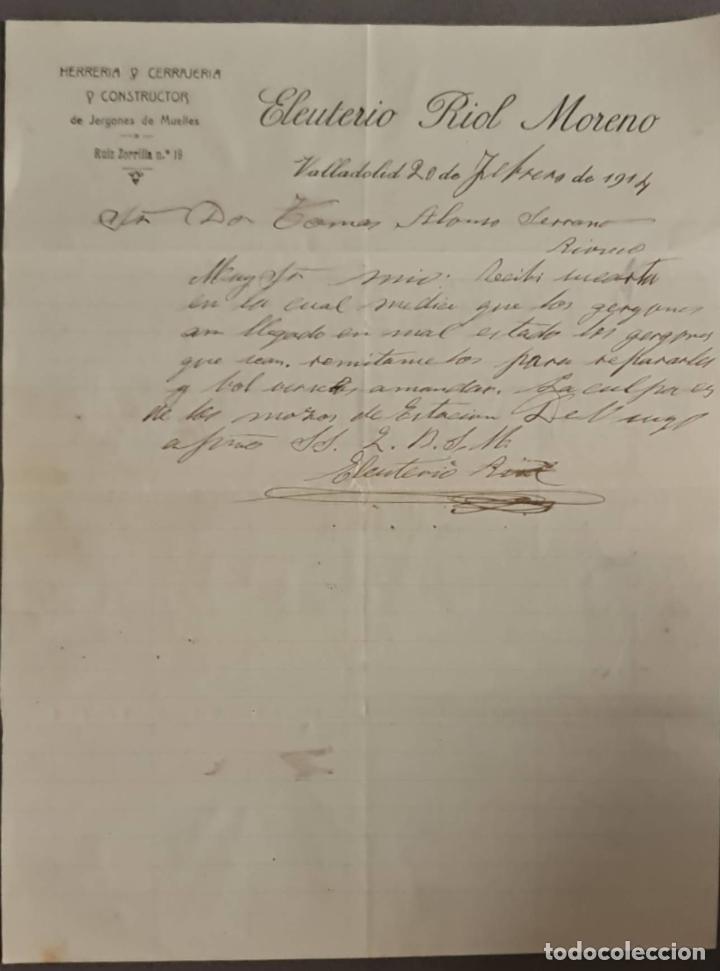 HERRERIA Y CERRAJERIA
Y CONSTRUCTOR
de Jergones de Muelles
Ruiz Zorrilla n.º 19
Eleuterio Riol Moreno
Valladolid 20 de Febrero de 1914
Sr Don Tomas Alonso Serrano
Rioseco
Muy Sr mio: Recibi su carta
en la cual me dice que los gergones
an llegado en mal estado los gergones
que sean. remitamelos para repararlos
y bolverselos a mandar. La culpa es
de los mozos de Estacion De V
afmo SS. Q. B. S. M.
Eleuterio Riol
todocoleccion.net